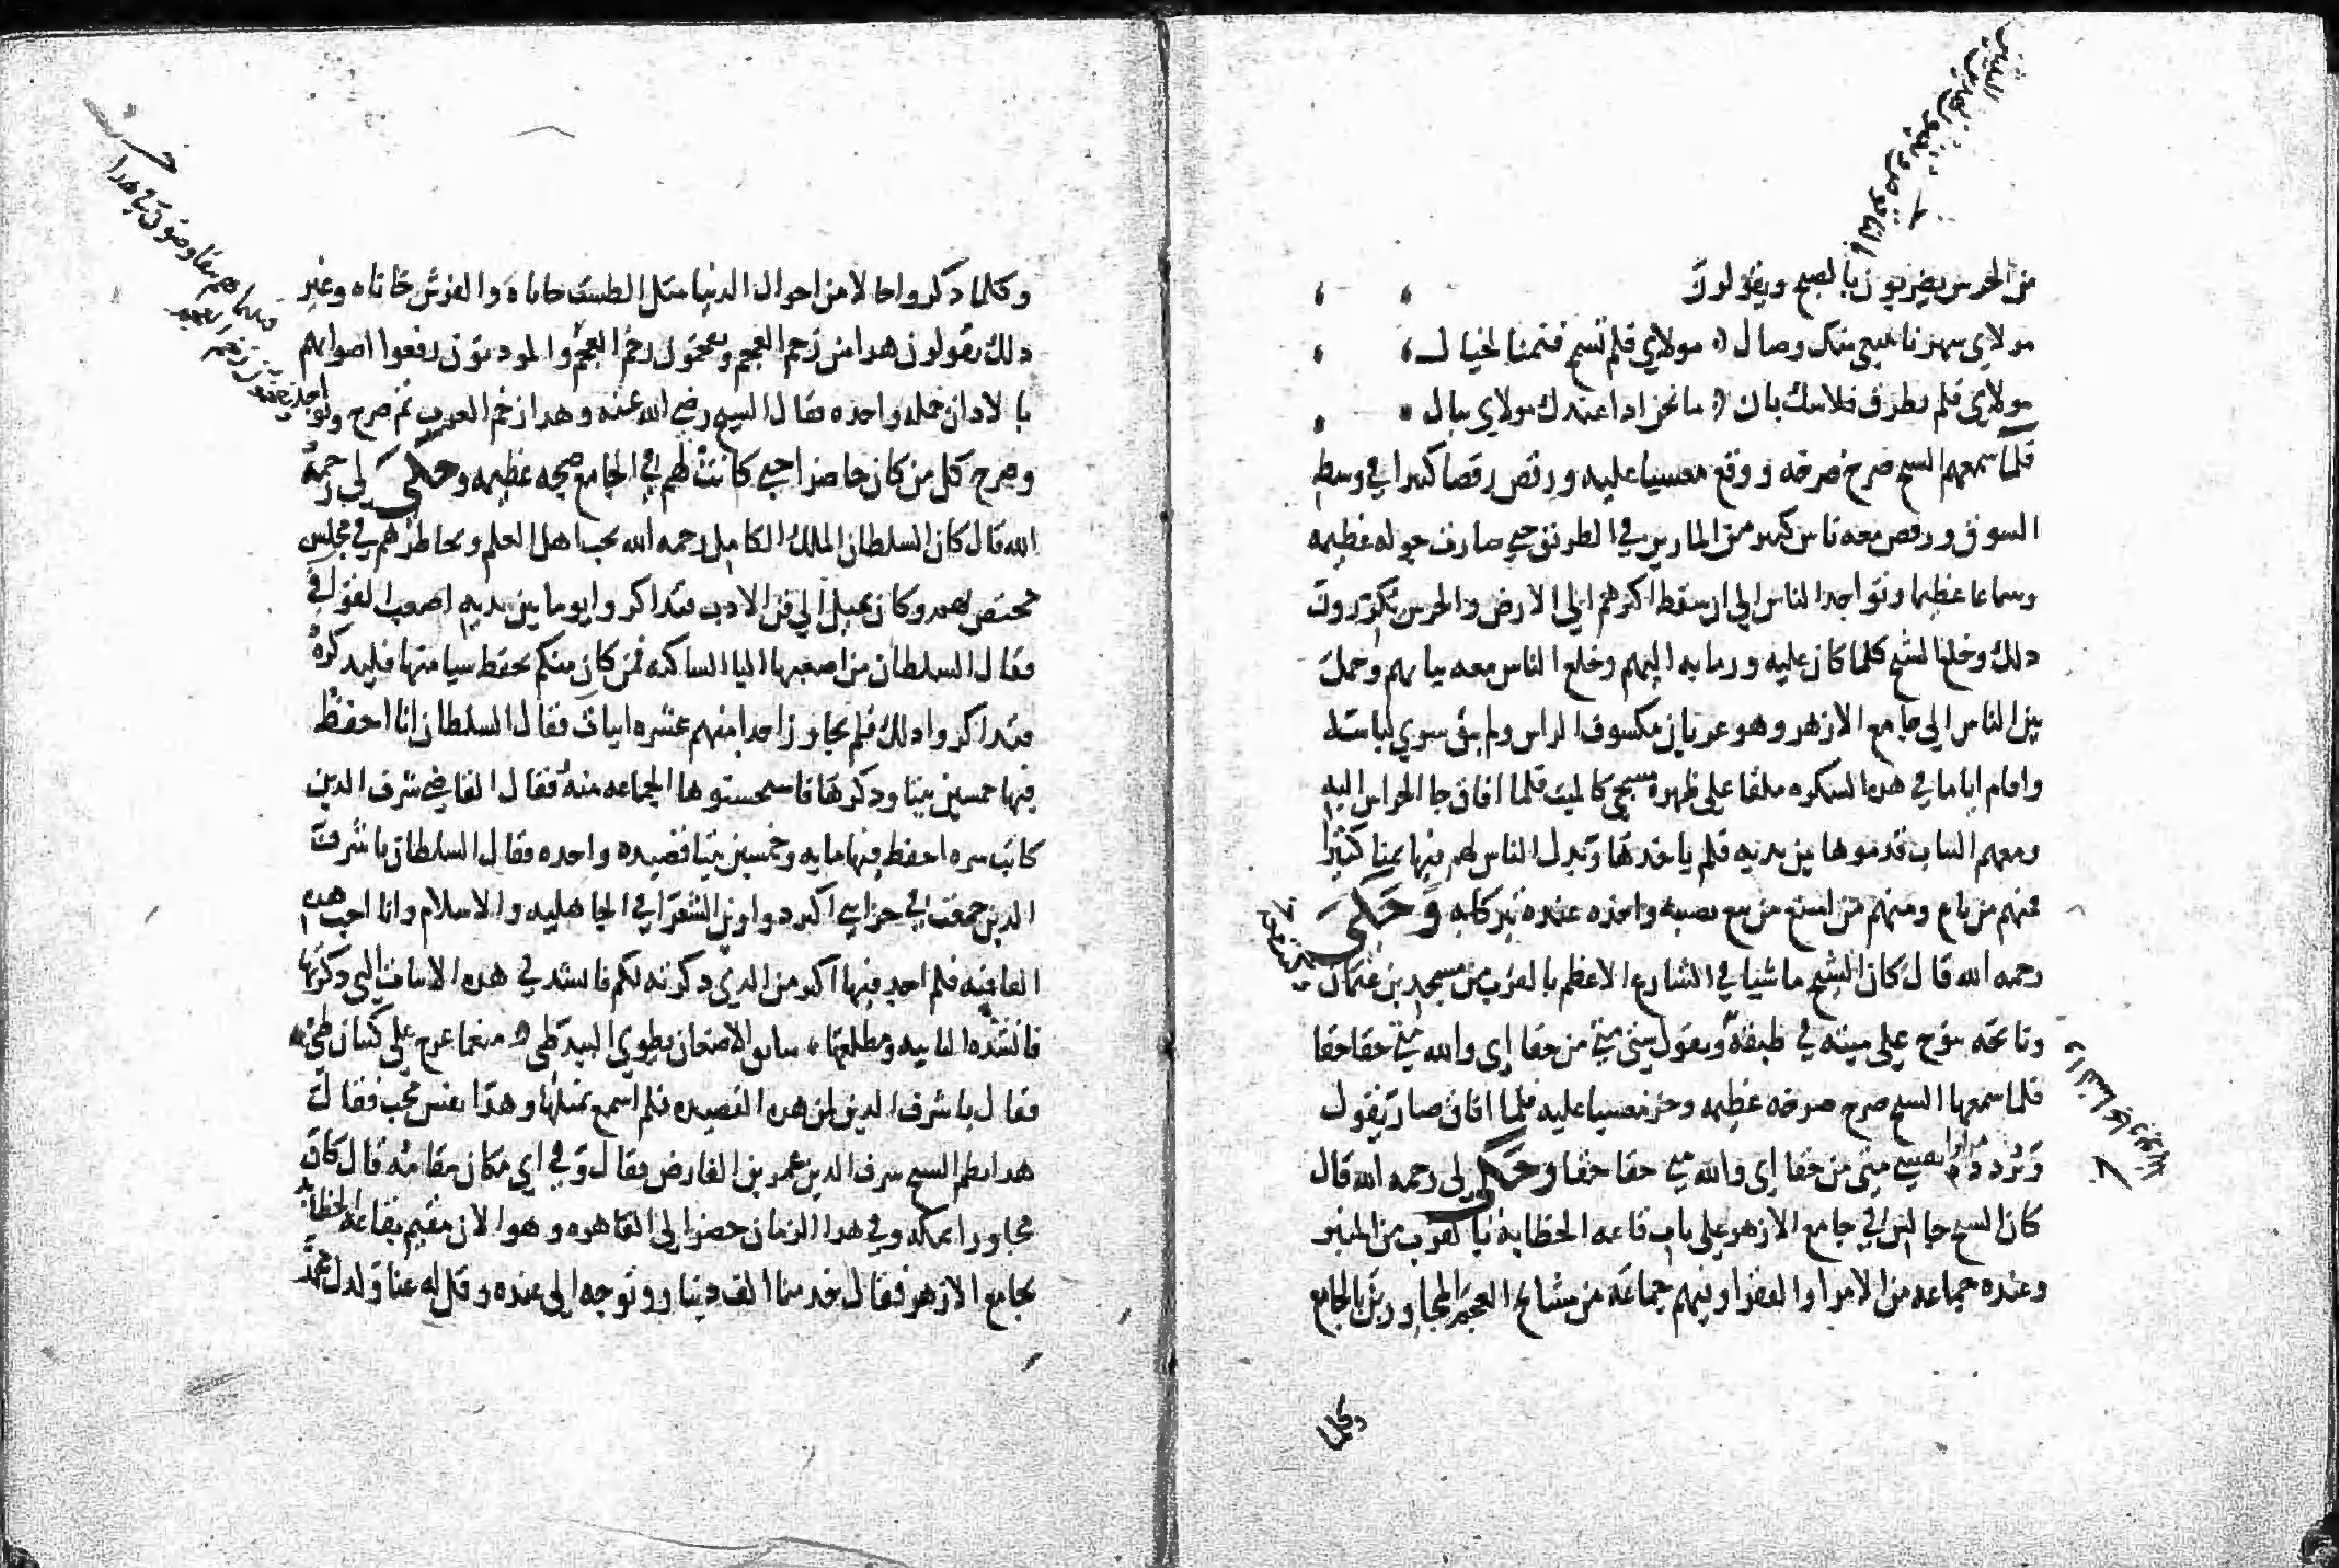 من الحرس يضربون بالصبح ويقولون
مولاي سهرنا نبتغي منك وصال مولاي فلم تسمح فنمنا لخيال
مولاي فلم يطرق فلا شك بان ما نحن اذا عندك مولاي ببال
فلما سمعهم السيح صرخ صرخه ووقع مغسيا عليه ورقص رقصا كبيرا في وسط
السوق ورقص معه ناس كثير من المارين في الطريق حتي صارت جوله عظيمه
وسماعا عظيما وتواجد الناس الي ان سقط اكثرهم الي الارض والحرس يكررون
دلك وخلع الشيخ كلما كان عليه ورما به اليهم وخلع الناس معه ثيابهم وحمل
بين الناس الي جامع الازهر وهو عريان مكسوف الراس ولم يبق سوي لباسه
واقام اياما في هده السكره ملقا على ظهره مسجي كالميت فلما افاق جا الحراس اليه
ومعهم الثياب قدموها بين يديه فلم ياخدها وبدل الناس لهم فيها ثمنا كثيرا
فمنهم من باع ومنهم من امتنع من بيع نصيبه واخذه عنده تبركا به وحكي
رحمه الله قال كان الشيخ ماشيا في الشارع الاعظم بالقرب من مسجد بن عثمان
ونائحه تنوح على ميته في طبقه وتقول ستي متي من حقا اي والله متي حقا حقا
فلما سمعها السيح صرح صرخه عظيمه وخر مغسيا عليه فلما افاق صار يقول
ويردد نفسي متي من حقا اي والله متي حقا حقا وحكي لي رحمه الله قال
كان السيح جالسا في جامع الازهر على باب قاعه الخطابة بالقرب من المنبر
وعنده جماعه من الامرا والفقرا وفيهم جماعه من مشايخ العجم المجاورين بالجامع
وكلما
وكلما دكروا حالا من احوال الدنيا مثل الطست خاناه والفرش خاناه وغير
دلك يقولون هدا من زخم العجم والمودنون رفعوا اصواتهم
بالادان جمله واحده فقال السيح رضي الله عنه وهدا زخم العرب ثم صرح وتواجد
وصرح كل من كان حاضرا حتي كانت لهم في الجامع ضجه عظيمه وحكي لي رحمه
الله قال كان السلطان الملك الكامل رحمه الله يحب اهل العلم ويحاضرهم في مجلس
مختص بهم وكان يميل الي فن الادب فتداكروا يوما بين يديه اصعب القوافي
فقال السلطان من اصعبها اليا الساكنه فمن كان منكم يحفظ سيا منها فليدكره
فتداكروا دلك فلم يجاوز احدا منهم عشره ابيات فقال السلطان انا احفظ
فيها خمسين بيتا ودكرها فاستحسنوها الجماعه منه فقال القاضي شرف الدين
كاتب سره احفظ فيها مايه وخمسين بيتا قصيده واحده فقال السلطان يا شرف
الدين جمعت في خزايني اكثر دواوين الشعرا في الجاهليه والاسلام وانا احب هده
القافيه فلم اجد فيها اكثر من الدي دكرته لكم فانشدني هده الابيات التي دكرتها
فانشده اليائيه ومطلعها سايق الاضعان يطوي البيد طي منعما عرج علي كثبان طي
فقال يا شرف الدين لمن هده القصيده فلم اسمع بمثلها وهدا نفس محب فقال
هدا نظم السيح سرف الدين عمر بن الفارض فقال وفي اي مكان مقامه قال كان
مجاورا بمكه وفي هدا الزمان حضر الي القاهره وهو الان مقيم بقاعه الخطابه
بجامع الازهر فقال خد منا الف دينار وتوجه الي عنده وقل له عنا ولدك محمد